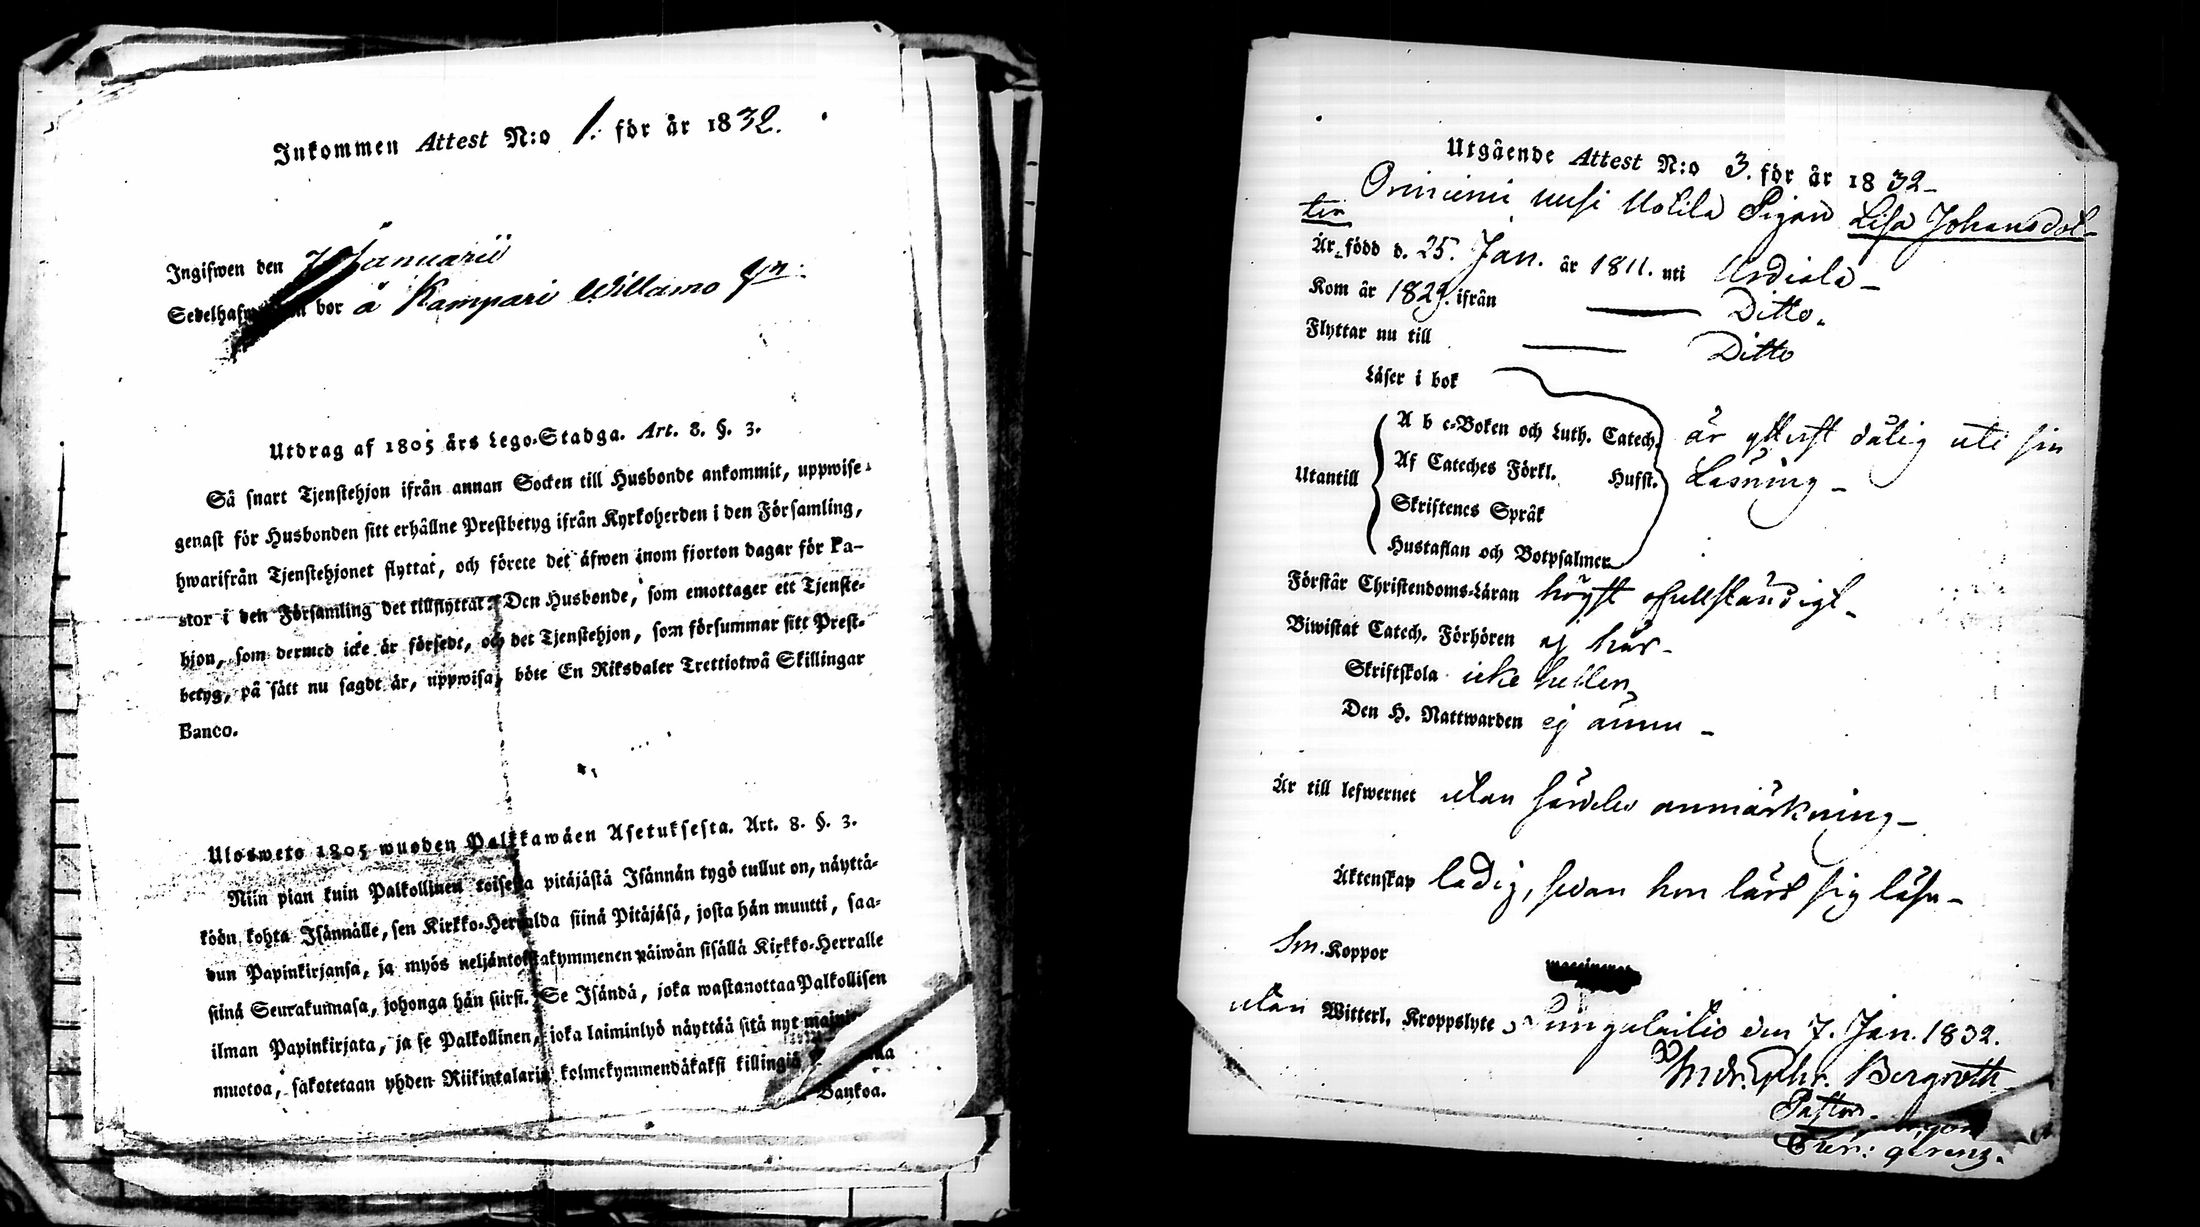 Inkommen Attest N:o 1. för år 1832.
Ingifwen den 7 Januarii
Sedelhafwaren bor å Kampari Willamo
Utdrag af 1805 års Lego-Stadga. Art. 8. §. 3.
Så snart Tjenstehjon ifrån annan Socken till Husbonde ankommit, uppwise
genast för Husbonden sitt erhållne Prestbetyg ifrån Kyrkoherden i den Församling,
hwarifrån Tjenstehjonet flyttat, och förete det äfwen inom fjorton dagar för Pa-
stor i den Församling det tillflyttat. Den Husbonde, som emottager ett Tjenste-
hjon, som dermed icke är försedt, och det Tjenstehjon, som försummar sitt Prest-
betyg, på sätt nu sagdt är, uppwisa, böte En Riksdaler Trettiotwå Skillingar
Banco.
Ulosweto 1805 wuoden Palkkawäen Asetuksesta. Art. 8. §. 3.
Niin pian kuin Palkollinen toisesta pitäjästä Isännän tygö tullut on, näyttä-
köön kohta Isännälle, sen Kirkko-Herralda siinä Pitäjäsä, josta hän muutti, saa-
dun Papinkirjansa, ja myös neljäntoistakymmenen päiwän sisällä Kirkko-Herralle
siinä Seurakunnasa, johonga hän siirsi. Se Isändä, joka wastanottaa Palkollisen
ilman Papinkirjata, ja se Palkollinen, joka laiminlyö näyttää sitä nyt
muotoa, sakotetaan yhden Riikintalarin kolmekymmendäkaksi killingiä
Bankoa.
Utgående Attest N:o 3. för år 1832-
Onniemi uusi Uotila Pigan Lisa Johansdot-
ter
Är född d. 25. Jan. år 1811. uti Urdiala-
Kom år 1829. ifrån Ditto.
Flyttar nu till Ditto
Läser i bok
A b c-Boken och Luth. Catech. är ytterst dålig uti sin
Utantill Af Cateches Förkl. Hufst. Läsning-
Skriftenes Språk
Hustaflan och Botpsalmer
Förstår Christendoms-Läran högst ofullständigt-
Biwistat Catech. Förhören ej här-
Skriftskola icke heller
Den H. Nattwarden ej ännu-
Är till lefwernet utan särdeles anmärkning-
Äktenskap ledig, sedan hon lärt sig läsa-
Sm. Koppor
utan Witterl. Kroppslyte Pungalaitio den 7. Jan. 1832.
Andr. Gebr. Bergroth
Pastor.